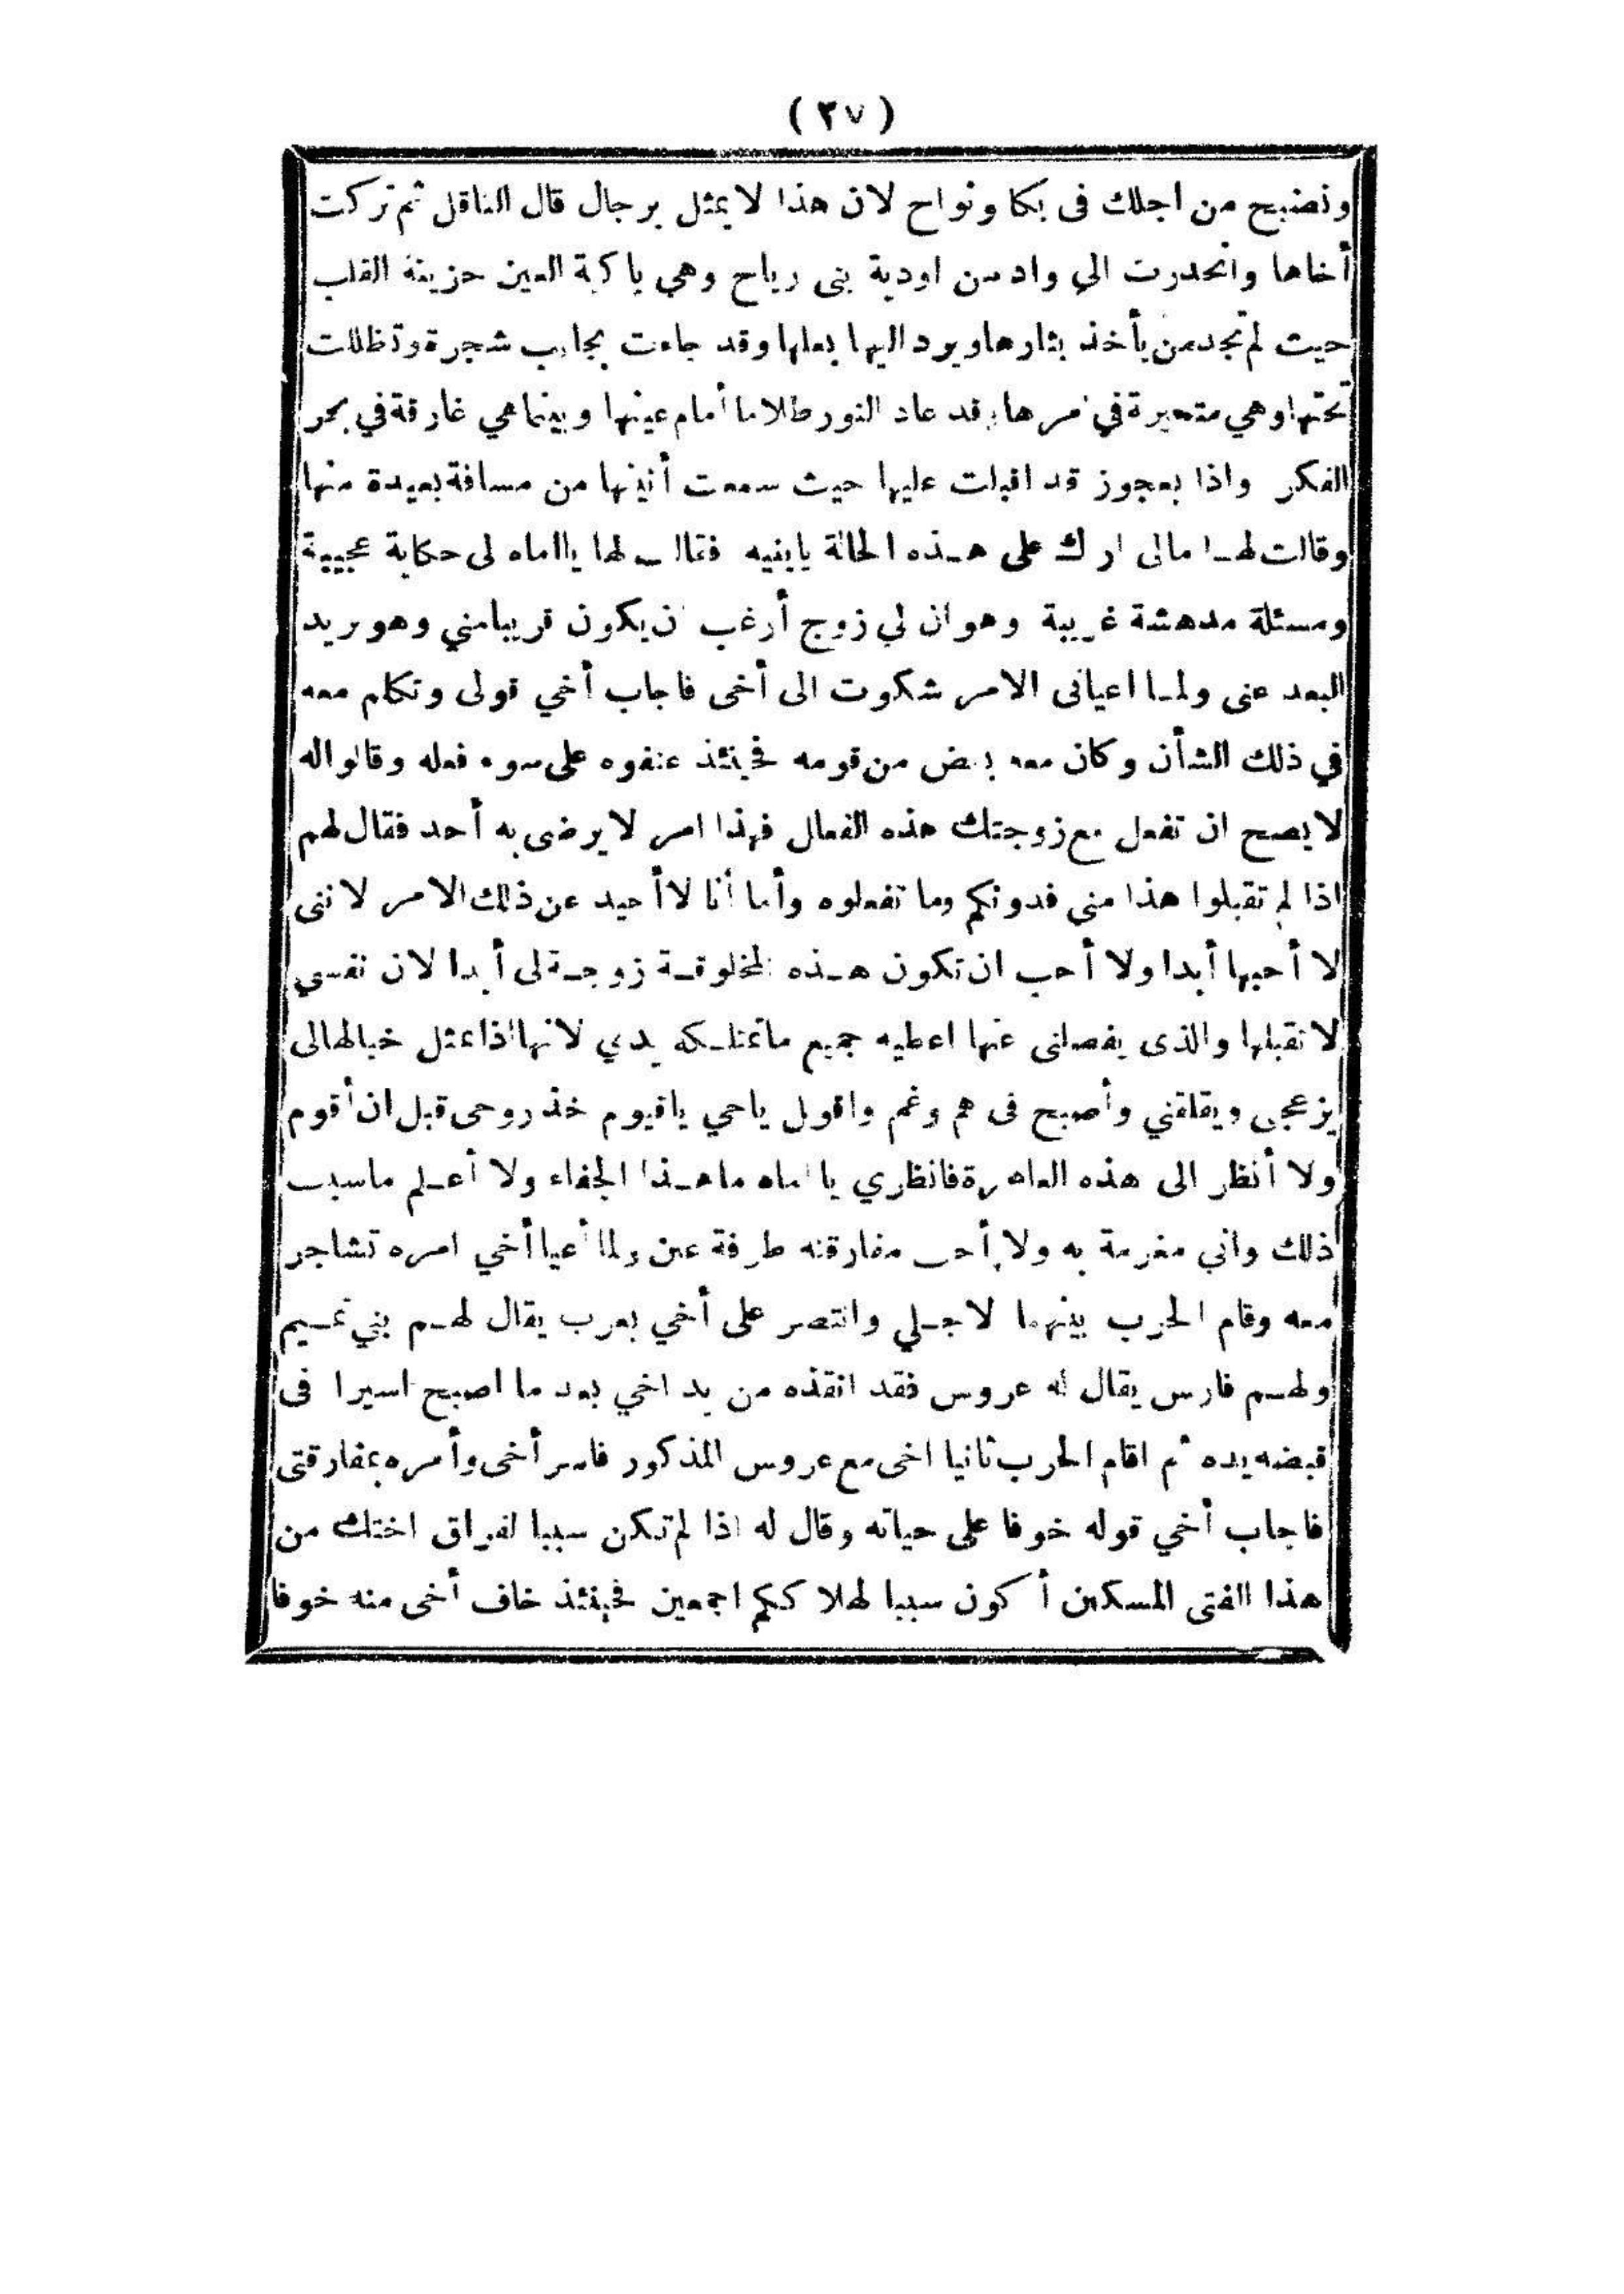 (٢٧)
ونصبح من اجلك فى بكا ونواح لان هذا لا يمثل برجال قال الناقل ثم تركت
أخاها وانحدرت الي واد من اودية بنى رياح وهي باكية العين حزينة القلب
حيث لم تجد من يأخذ بثارها ويرد اليها بعلها وقد جاءت بجانب شجرة وتظللت
تحتها وهي متحيرة في امرها وقد عاد النور ظلاما أمام عينها وبينما هي غارقة في بحر
الفكر واذا بعجوز قد اقبلت عليها حيث سمعت أنينها من مسافة بعيدة منها
وقالت لها مالى اراك على هذه الحالة يابنيه فقالت لها يااماه لى حكاية عجيبة
ومسئلة مدهشة غريبة وهو ان لي زوج أرغب ان يكون قريبا مني وهو يريد
البعد عنى ولما اعيانى الامر شكوت الى أخى فاجاب أخي قولى وتكلم معه
في ذلك الشأن وكان معه بعض من قومه فحينئذ عنفوه على سوء فعله وقالوا له
لا يصح ان تفعل مع زوجتك هذه الفعال فهذا امر لا يرضى به أحد فقال لهم
اذا لم تقبلوا هذا مني فدونكم وما تفعلوه وأما أنا لا أحيد عن ذلك الامر لاننى
لا أحبها أبدا ولا أحب ان تكون هذه المخلوقة زوجة لى أبدا لان نفسي
لا تقبلها والذى يفصلنى عنها اعطيه جميع ماتمتلكه يدي لانها اذا تمثل خيالها لى
يزعجى ويقلقني وأصبح فى هم وغم واقول ياحي ياقيوم خذ روحى قبل ان أقوم
ولا أنظر الى هذه العاهرة فانظري يا اماه ما هذا الجفاء ولا أعلم ماسبب
ذلك واني مغرمة به ولا أحب مفارقته طرفة عين ولما أعيا أخي امره تشاجر
معه وقام الحرب بينهما لاجلي وانتصر على أخي بعرب يقال لهم بني تميم
ولهم فارس يقال له عروس فقد انقذه من يد اخي بعد ما اصبح اسيرا فى
قبضه يده ثم اقام الحرب ثانيا اخى مع عروس المذكور فاسر أخى وأمره بمفارقتى
فاجاب أخي قوله خوفا على حياته وقال له اذا لم تكن سببا لفراق اختك من
هذا الفتى المسكين أكون سببا لهلاككم اجمعين فحينئذ خاف أخى منه خوفا